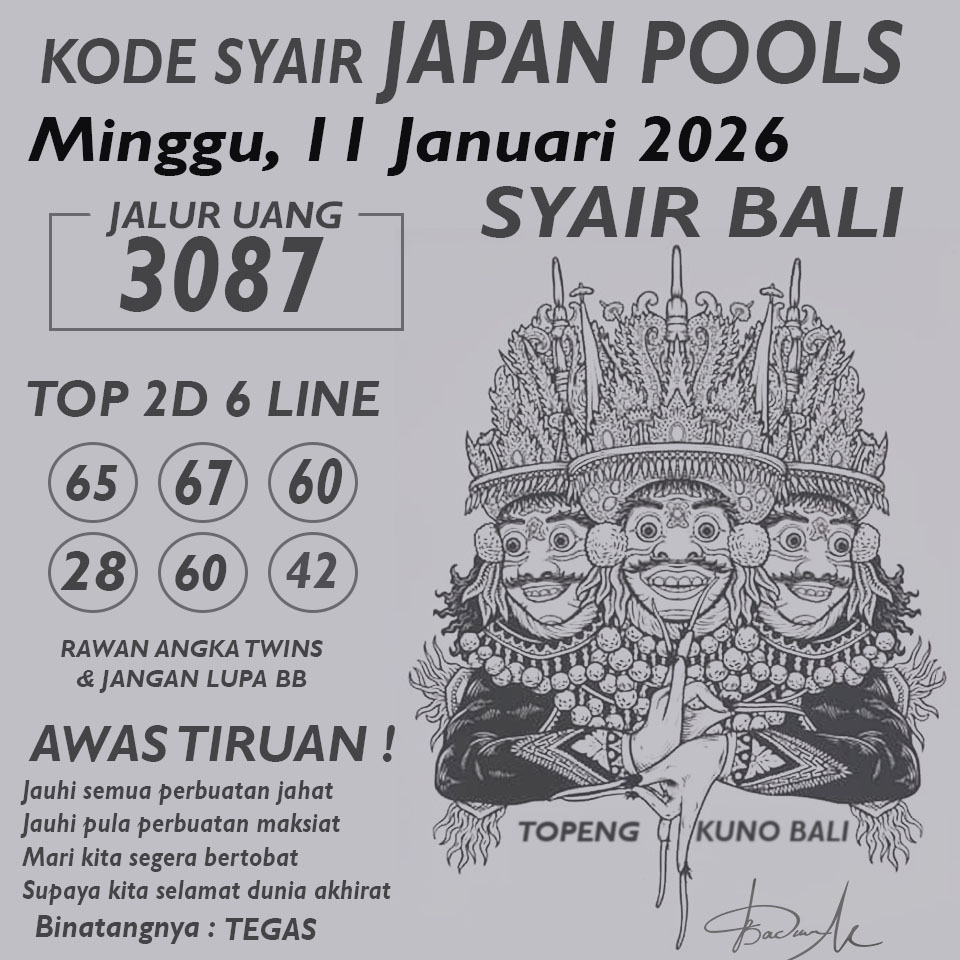 KODE SYAIR JAPAN POOLS
Minggu, 11 Januari 2026
SYAIR BALI
JALUR UANG
3087
TOP 2D 6 LINE
65 67 60
28 60 42
RAWAN ANGKA TWINS
& JANGAN LUPA BB
AWAS TIRUAN !
Jauhi semua perbuatan jahat
Jauhi pula perbuatan maksiat
Mari kita segera bertobat
Supaya kita selamat dunia akhirat
Binatangnya : TEGAS
TOPENG KUNO BALI